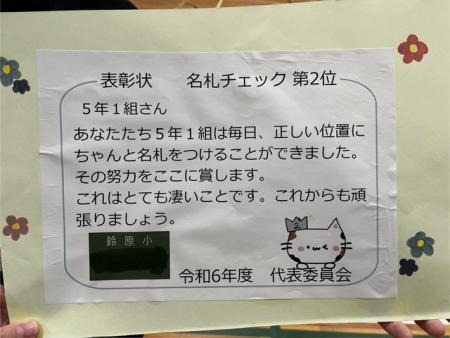 表彰状　　名札チェック 第2位
５年１組さん
あなたたち５年１組は毎日、正しい位置に
ちゃんと名札をつけることができました。
その努力をここに賞します。
これはとても凄いことです。これからも頑
張りましょう。
鈴原小
2
令和6年度　代表委員会